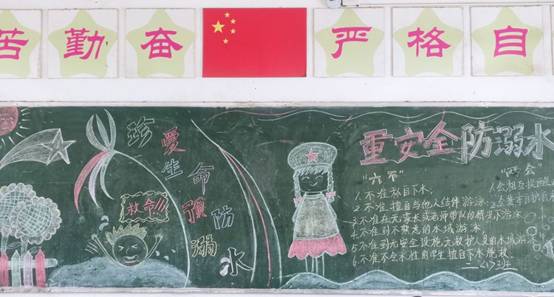 苦勤奋 严格自
珍爱生命预防溺水
救命
重安全防溺水
“六不”
1.不准私自下水.
2.不准擅自与他人结伴游泳.
3.不准在无家长或老师带队的情况下游泳.
4.不准到不熟悉的水域游泳.
5.不准到无安全设施、无救护人员的水域游泳.
6.不准不会水性的学生擅自下水施救.
会